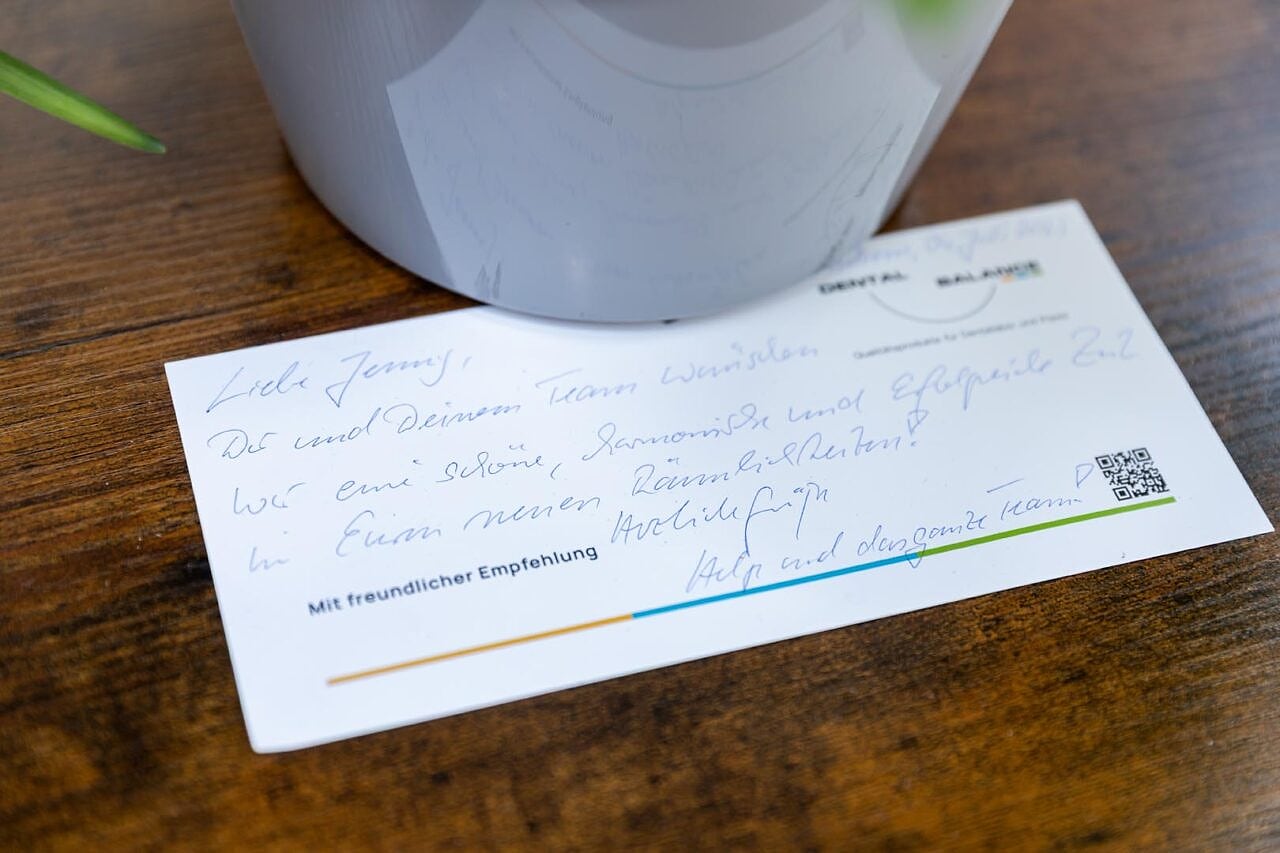 DENTAL BALANCE
Qualitätsprodukte für Dentallabor und Praxis
Liebe Jenny,
Dir und Deinem Team wünschen
wir eine schöne, harmonische und Erfolgreiche Zeit
in Euren neuen Räumlichkeiten!
Herzliche Grüße
und das ganze Team!
Mit freundlicher Empfehlung